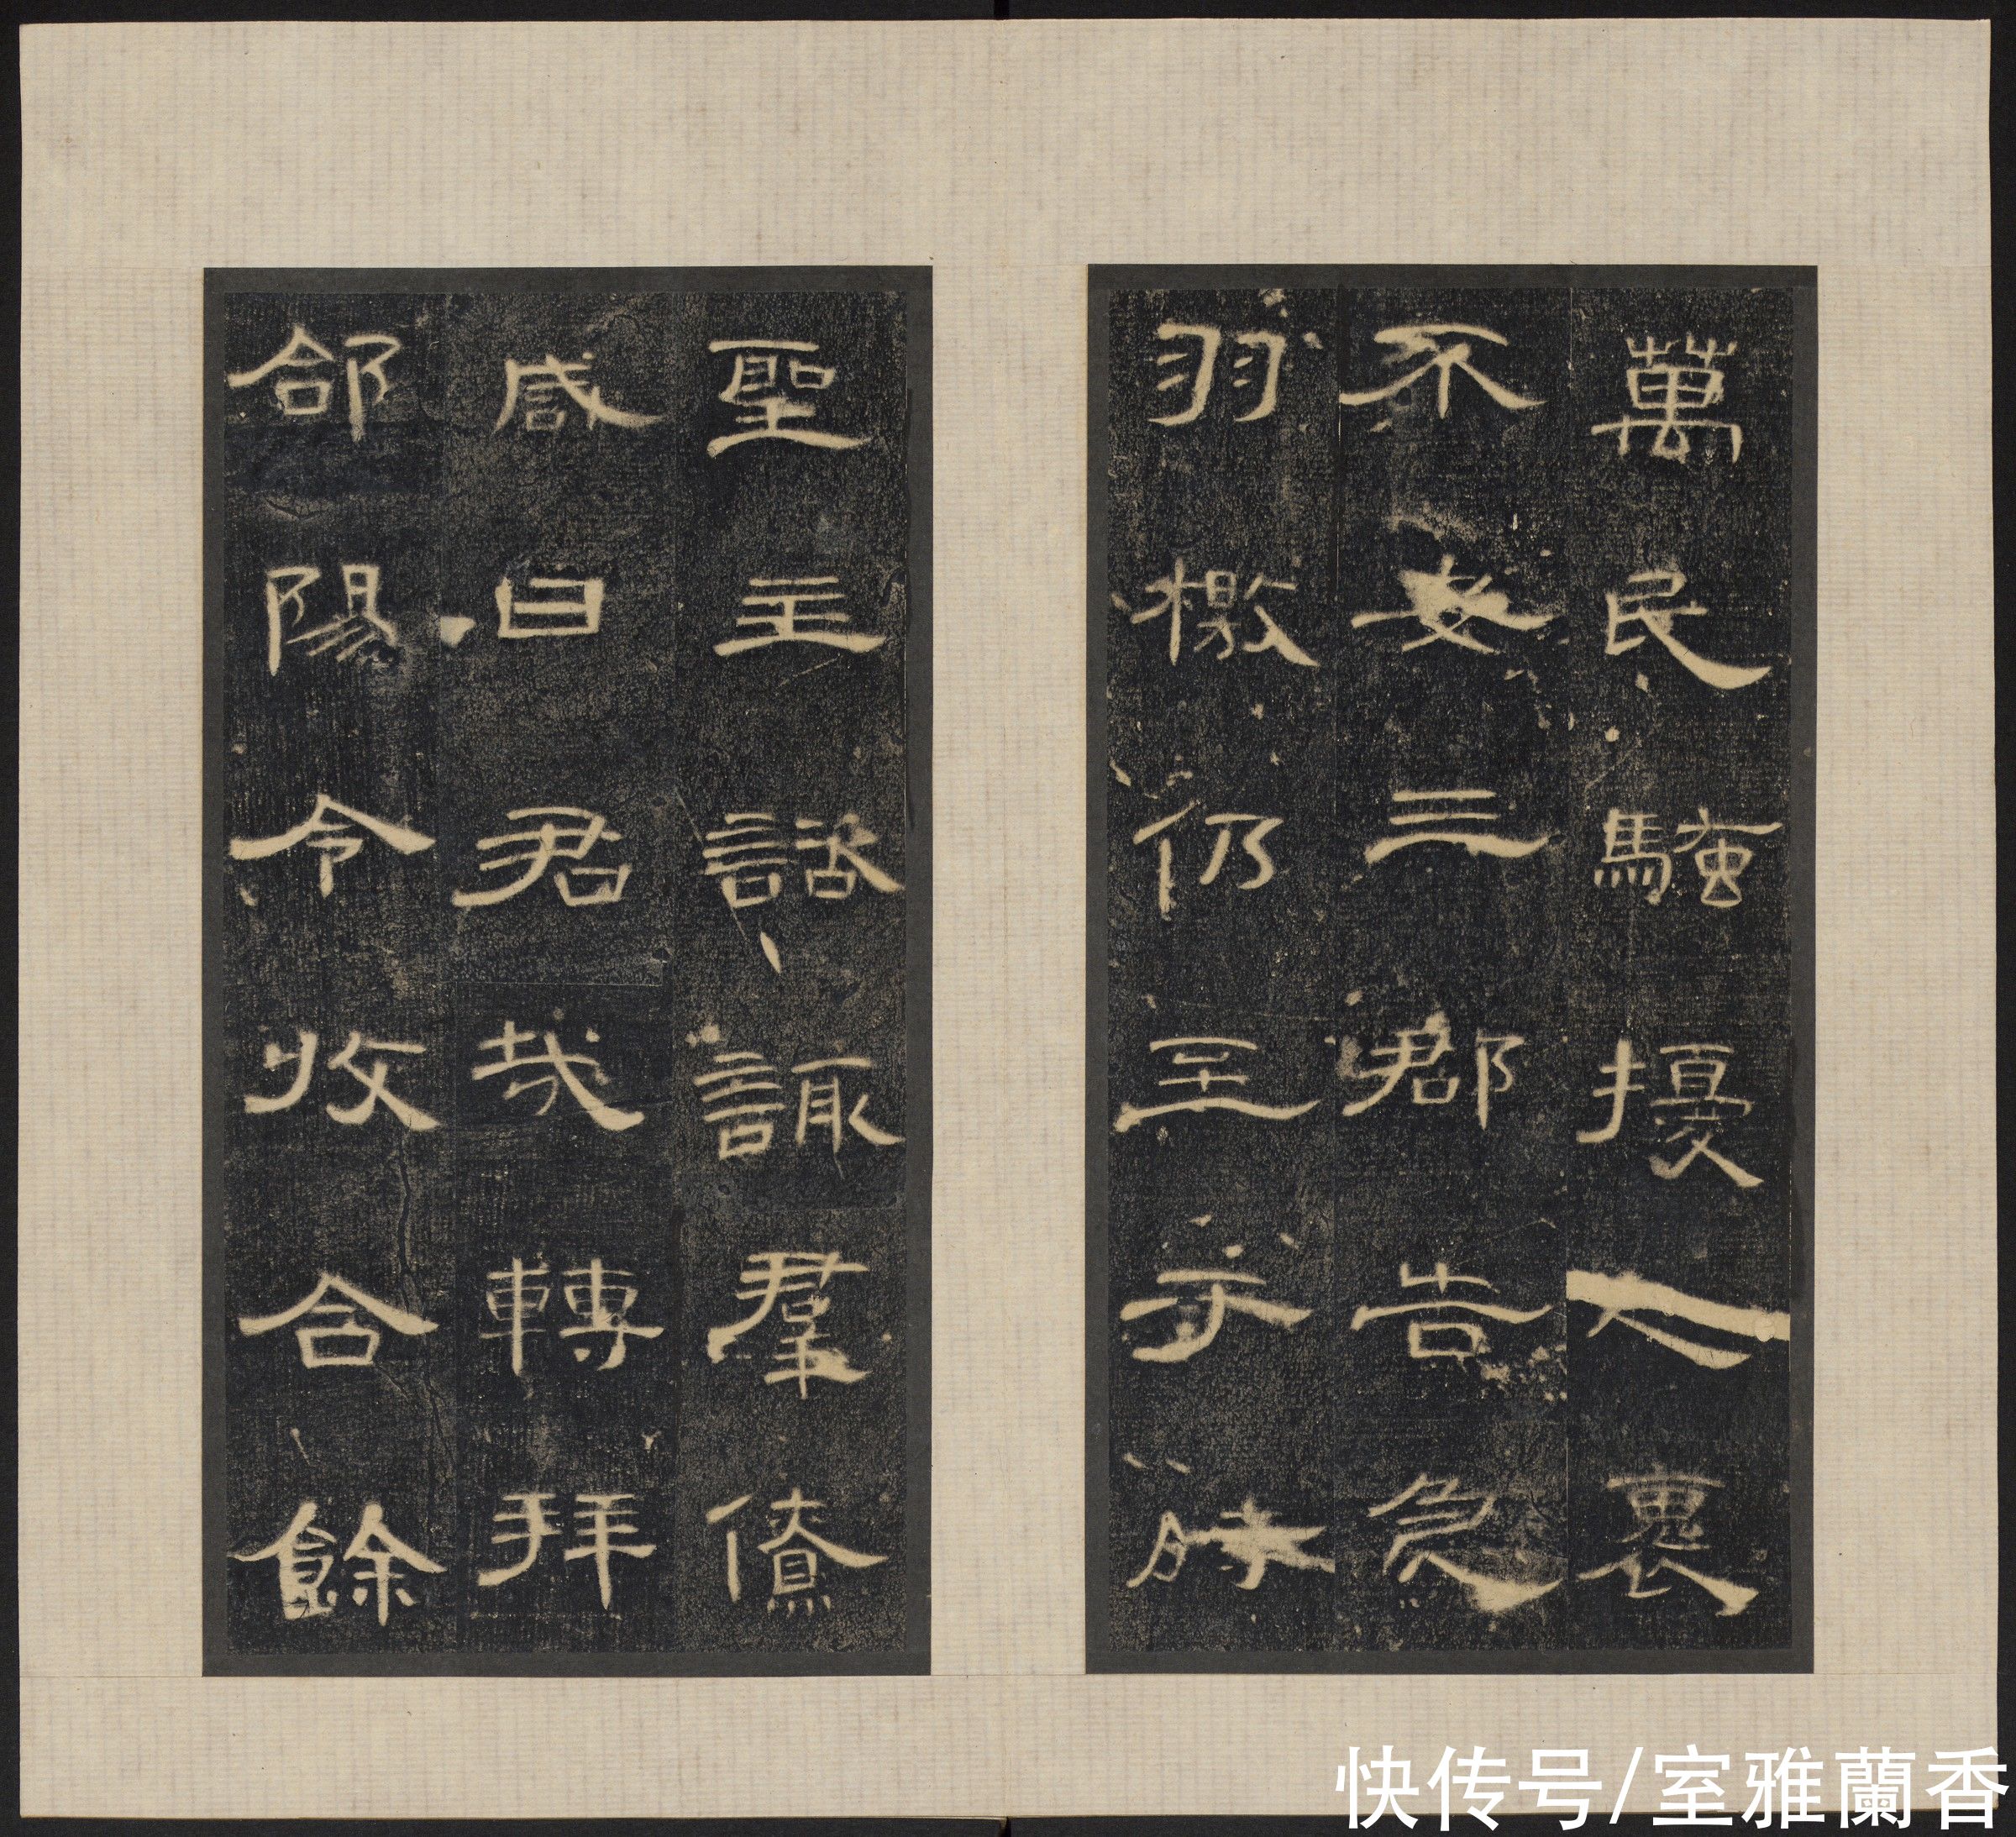 萬民騷擾人褱
不安三郡告急
羽檄仍至于時
聖主諮諏羣僚
咸曰君哉轉拜
郃陽令收合餘
快传号/室雅蘭香